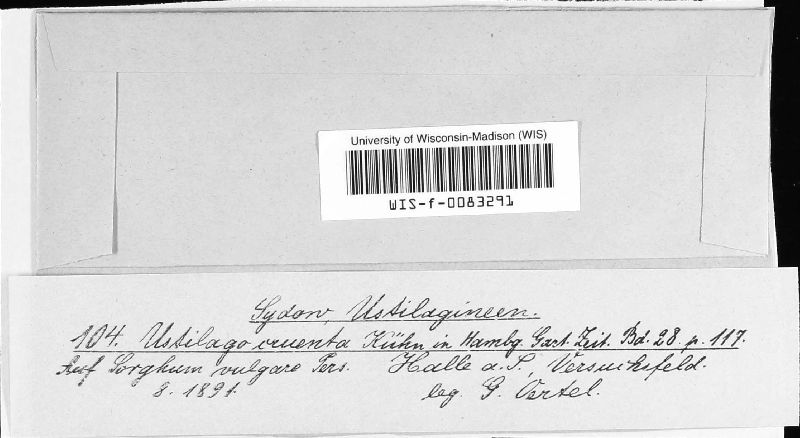 University of Wisconsin-Madison (WIS)
WIS-f-0083291
Sydow, Ustilagineen.
104. Ustilago cruenta Kühn in Hambg. Gart. Zeit. Bd. 28. p. 117.
Auf Sorghum vulgare Pers. Halle a. S., Versuchsfeld.
8. 1891. leg. G. Oertel.